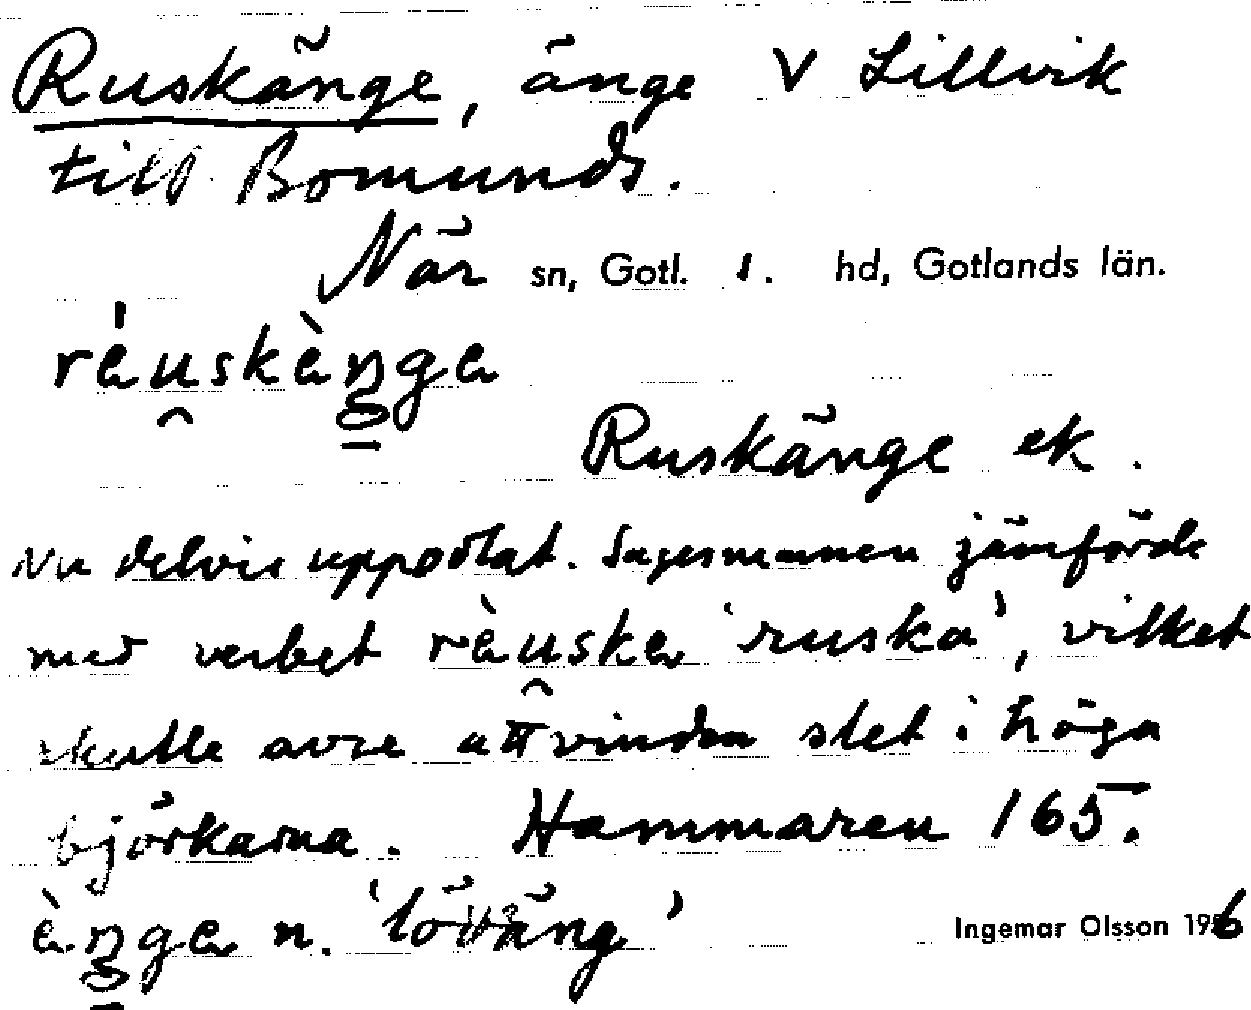 Ruskänge, änge V Lillvik
till Bomunds.
När sn, Gotl. 1. hd, Gotlands län.
ràu̯skàŋ̱ge
Ruskänge ek.
Nu delvis uppodlat. Sagesmannen jämförde
med verbet ràu̯ska 'ruska', vilket
skulle avse att vinden slet i höga
björkarna. Hammaren 165.
àŋ̱ge n. 'löväng' Ingemar Olsson 1956